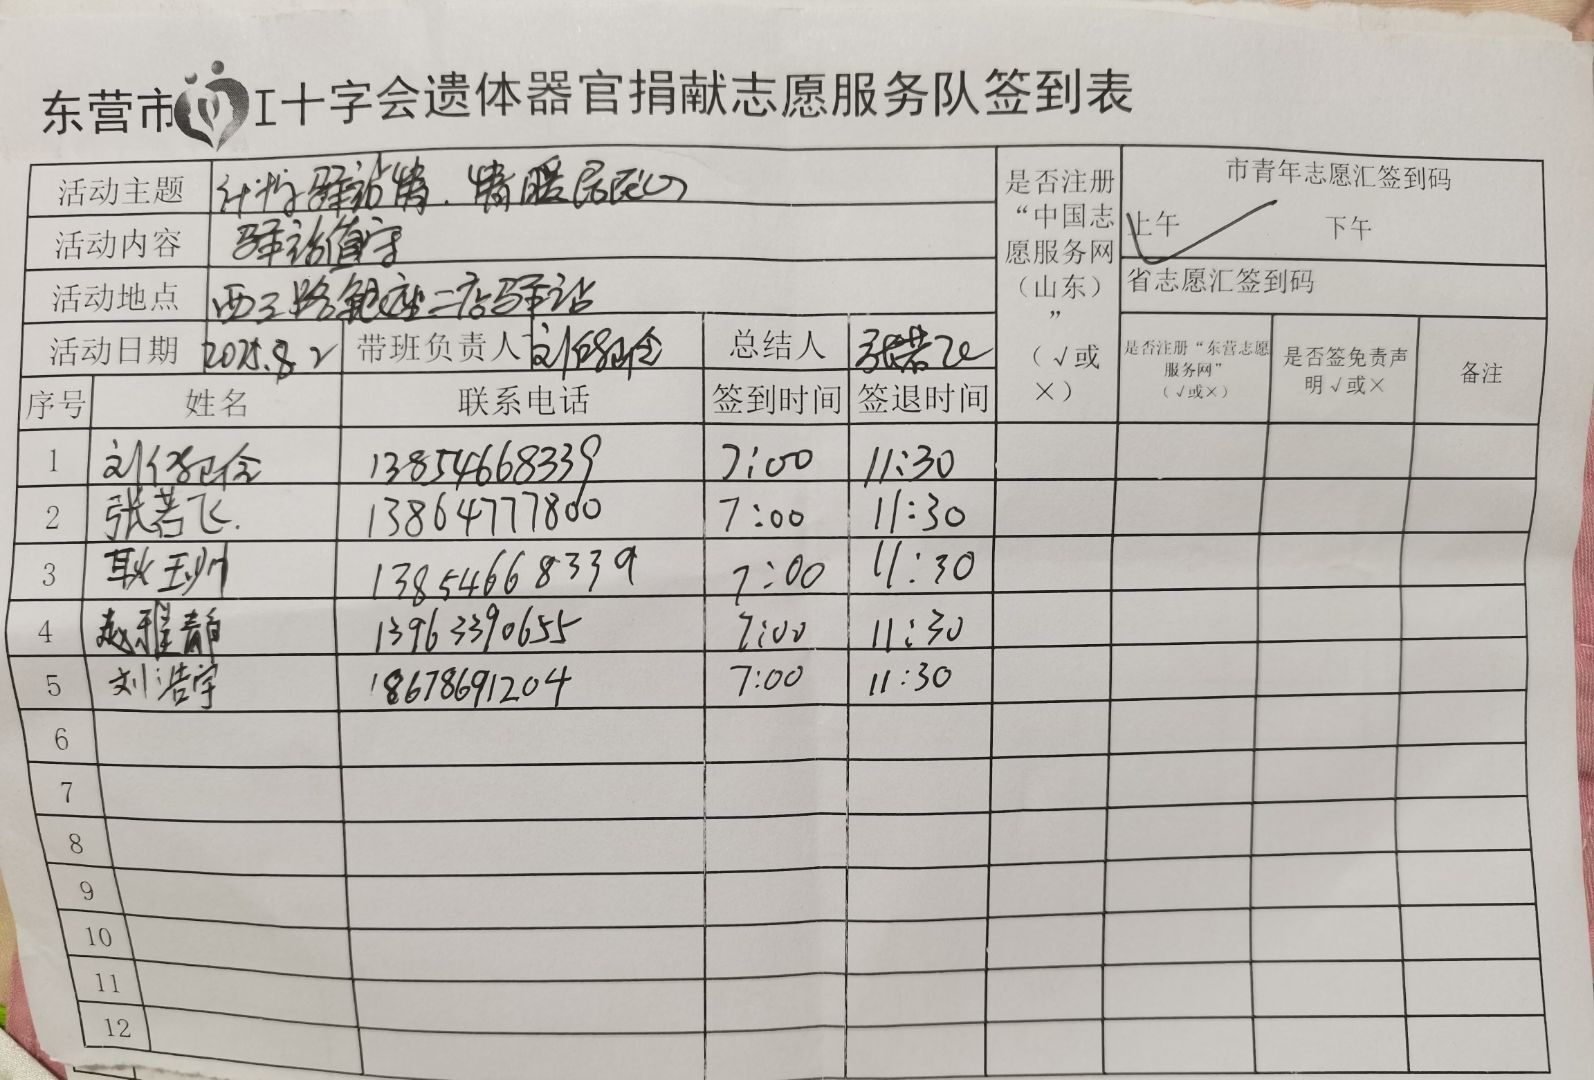 东营市工十字会遗体器官捐献志愿服务队签到表
活动主题 驿站情.情暖居民心
是否注册“中国志愿服务网（山东）”（√或×）
市青年志愿汇签到码
上午 √ 下午
活动内容 驿站值守
省志愿汇签到码
活动地点 西三路 二店驿站
活动日期 2025.8.2 带班负责人 刘 总结人 张若飞
是否注册“东营志愿服务网”（√或×） 是否签免责声明√或× 备注
序号 姓名 联系电话 签到时间 签退时间
1 刘 13854668339 7:00 11:30
2 张若飞. 13864777800 7:00 11:30
3 耿玉帅 13854668339 7:00 11:30
4 赵雅静 13963390655 7:00 11:30
5 刘浩宇 18678691204 7:00 11:30
6
7
8
9
10
11
12